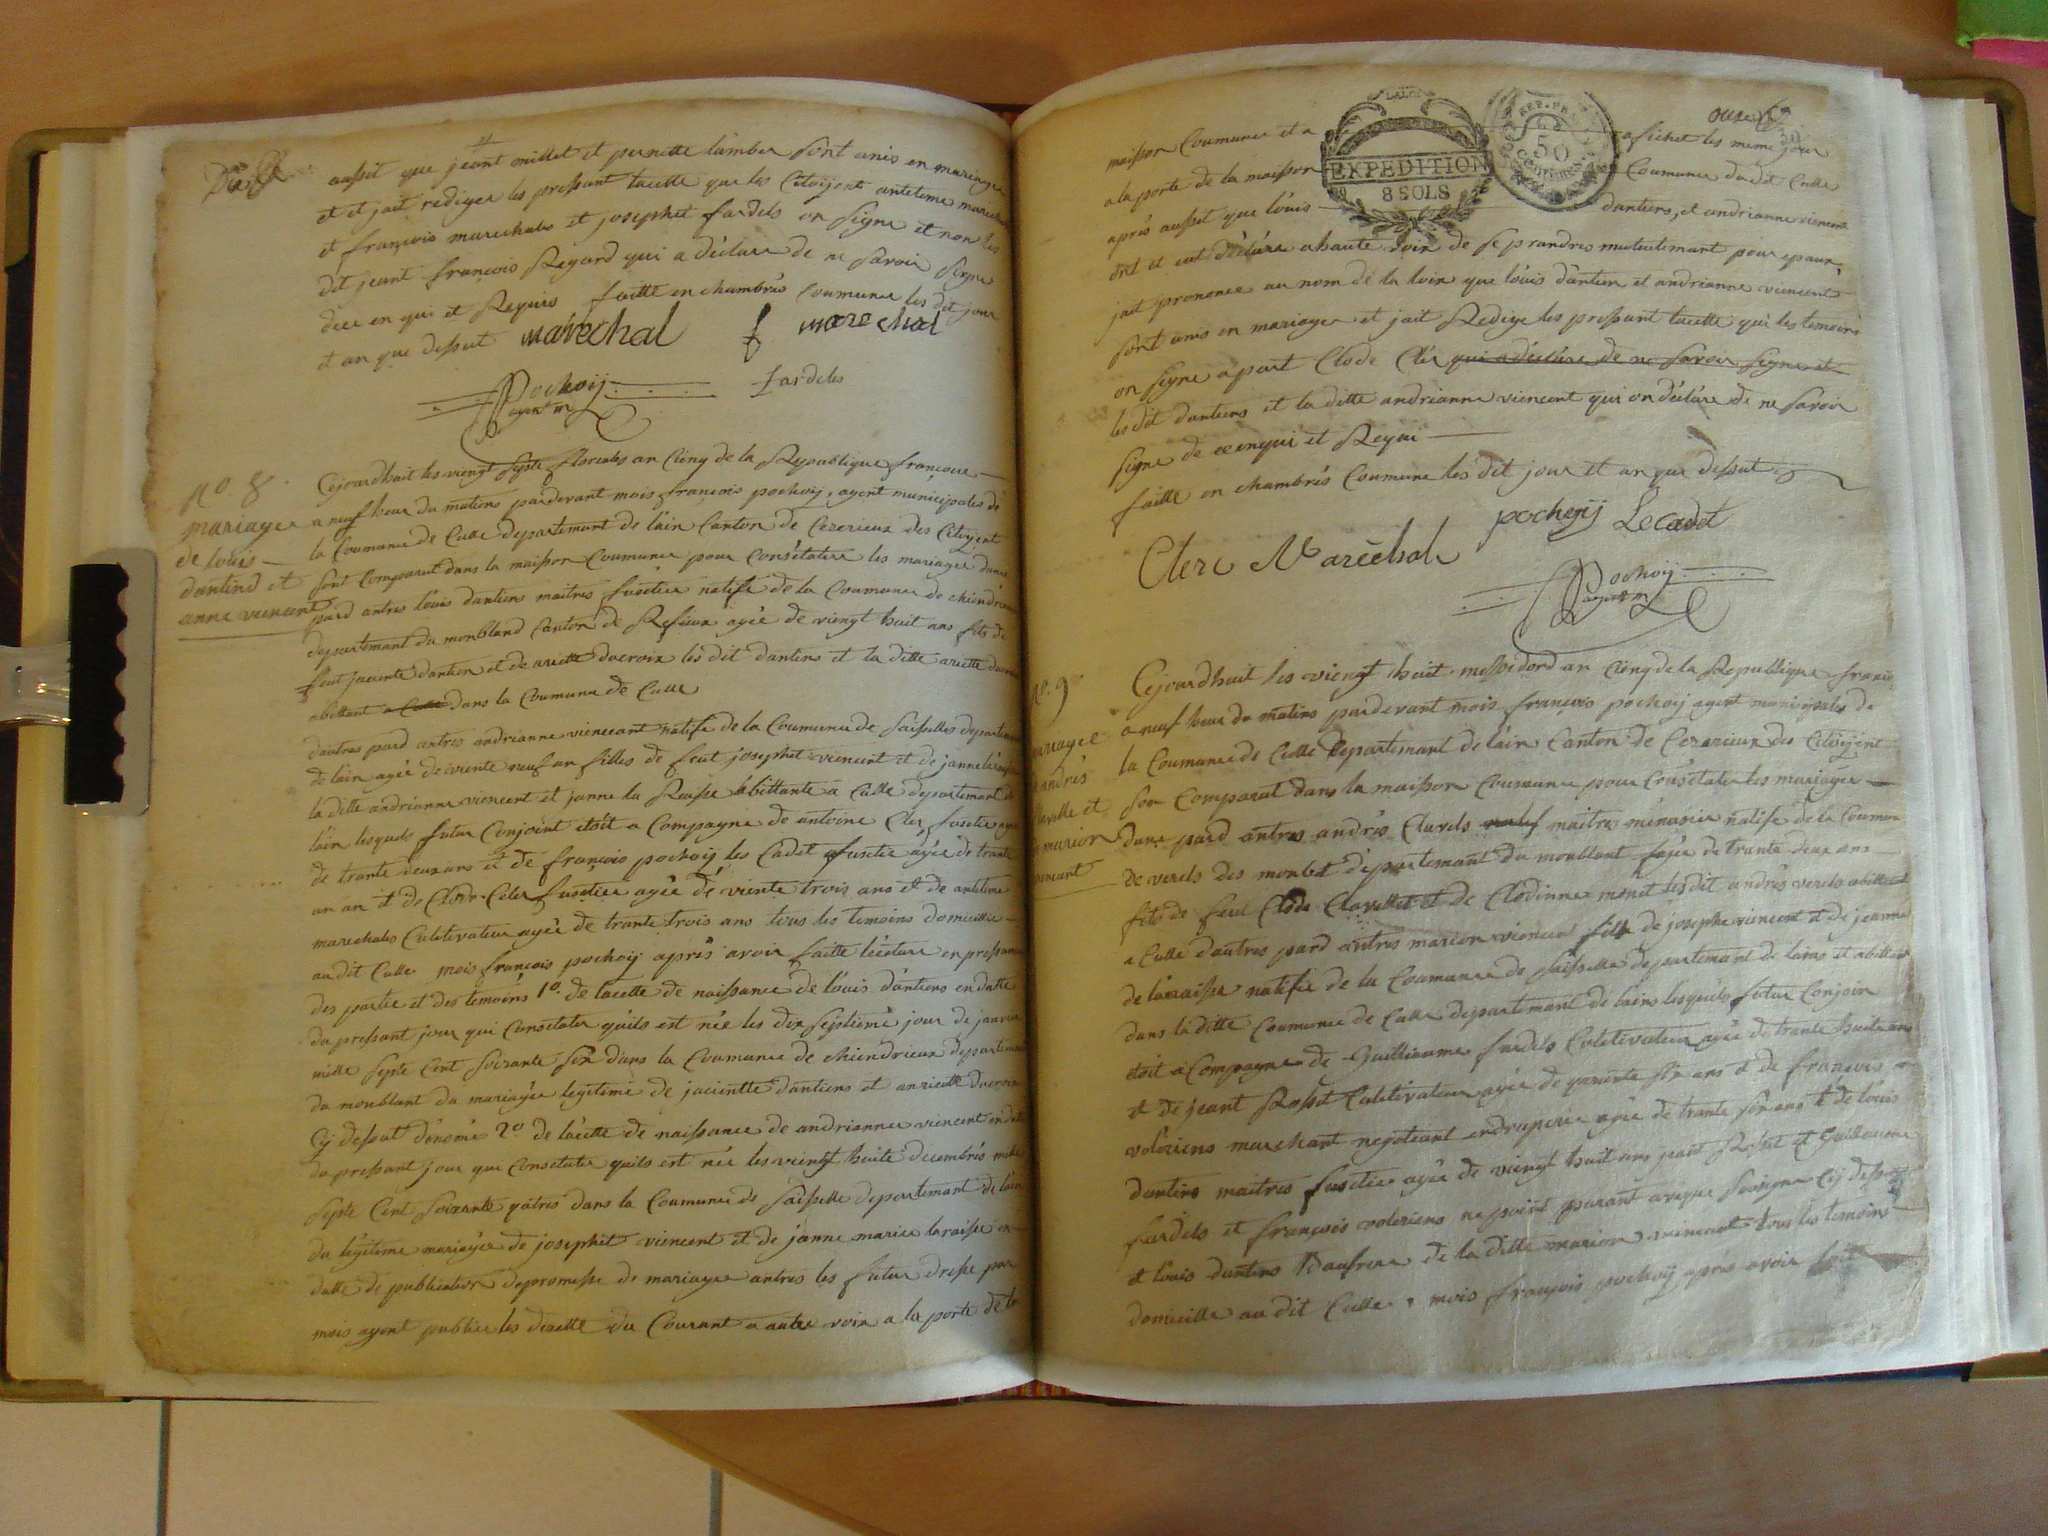 aussit que jeant millet et pernette lamber sont unis en mariage
et et jait rediger les pressant lacette que les Citoijent antelime marechal
et françois marechales et josephet fardels on signe et non les
dit jeant françois Regard qui a déclare de ne savoir signe
dece en qui et Requis faitte en chambrés Coumune les dit jour
et an que dessut marechal f marechal
fardeles
pochoij
agent m
No. 8
mariages
de louis
dantind et
anne viencent
Cejourdhuit les viengt septe floreales an Cienq de la Republique francoise
a neuf heur du matiens pardevant mois françois pochoij, agent municipales de
la Coumune de Culle departemant de lain Canton de Cezerieux des Citoyent
sont Comparut dans la maisson Coumune pour Consétater les mariages dune
pard antres louis dantiens maitres fusetier natife de la Coumune de chiendrieux
departemant du monbland Canton de Rufieux agée de viengt huit ans fils de
feut jacinte dantien et de ariette ducroix les dit dantiens et la ditte ariette ducroix
abittant a Culle dans la Coumune de Culle
dautres pard antres andrianne viencent natife de la Coumune de saisselles departemant
de lain agée de viente neuf an filles de feut josephet viencent et de janne laraisse
la ditte andrianne viencent et janne la Raisse abittante a Culle departemant de
lain lesquels futur Conjoint etoit a Compagne de antoine Cler fusetier agée
de trante deux ans et de françois pochoij les Cadet fusetier agée de trante
un an et de Clode Cler fusetier agée de viente trois ans et de antelime
marechales Culetivateur agée de trante trois ans tous les temoins domicillie
au dit Culle mois françois pochoij aprés avoir faitte lecture en pressance
des partie et des temoins 1o. de lacette de naissance de louis dantiens en datte
du pressant jour qui Consetater quils est née les dix septieme jour de janvier
mille septe Cent soixante six dans la Coumune de chiendrieux departemant
du monblant du mariage legitime de jacintte dantiens et anriette ducroix
Cij dessut denomé 2o. de lacette de naissance de andrianne viencent en datte
du pressant jour que Consetater quils est née les viengt huite decembres mille
septe Cent soixante qatres dans la Coumune de saisselle departemant de lain
du légitime mariage de josephet viencent et de janne marie laraisse en
datte de publication de promesse de mariage antres les futur dresse par
mois agent publier les dixette du Courant a aute voix a la porte de la
maisson Coumune et a afichet les meme jour
a la porte de la maisson Coumune du dit Culle
EXPEDITION
8 SOLS
REP. FRA.
50
CENTIMES
aprés aussit que louis dantiens, et andrianne viencent
ont et eut déclare a haute voix de se prandres mutuelemant pour epaux,
jait prononce au nom de la loix que louis dantien et andrianne viencent
sont unis en mariage et jait Redige les pressant lacette qui les temoins
on signe a part Clode Cler qui a déclare de ne savoir signe et
les dit dantiens et la ditte andrianne viencent qui on déclare de ne savoir
signe de ce enqui et Requi
faitte en chambrés Coumune les dit jour et an que dessut
pochoij Lecadet
Clere Maréchal
pochoij
agent m
No. 9
mariage
andrés
Clavelle et
marion
viencent
Cejourdhuit les viengt huit messidord an Cienq de la Republique francoise
a neuf heur du matiens pardevant mois françois pochoij agent municipales de
la Coumune de Culle departemant de lain Canton de Cezerieux des Citoijent
son Comparut dans la maisson Coumune pour Consetater les mariages
dune pard antres andrés Clavels natif maitres menusier natife de la Coumune
de verels des monbet departemant du monblant agée de trante deux ans
fils de feut Clode Clavelles et de Clodinne monet les dit andrés verels abittant
a Culle dautres pard antres marion viencen fille de josephe viencent et de jeanne
de laraisse natife de la Coumune de saisselle departemant de lains et abittant
dans la ditte Coumune de Culle departemant de lains lesquels futur Conjoin
etoit a Compagne de Guilliaume fardels Culetivateur agée de trante huite ans
et de jeant Rosset Culetivateur agée de quarante six ans et de françois
voleriens marchant negotiant endraperie agée de trante six ans et de louis
dantiens maitres fusetier agée de viengt huit ans jant Rosset et Guilliaume
fardels et françois voleriens ne point parant aveque les signe Cij dessut
et louis dantiens Baufrere de la ditte marion viencent tous les temoins
domicillie au dit Culle, mois françois pochoij aprés avoir fait